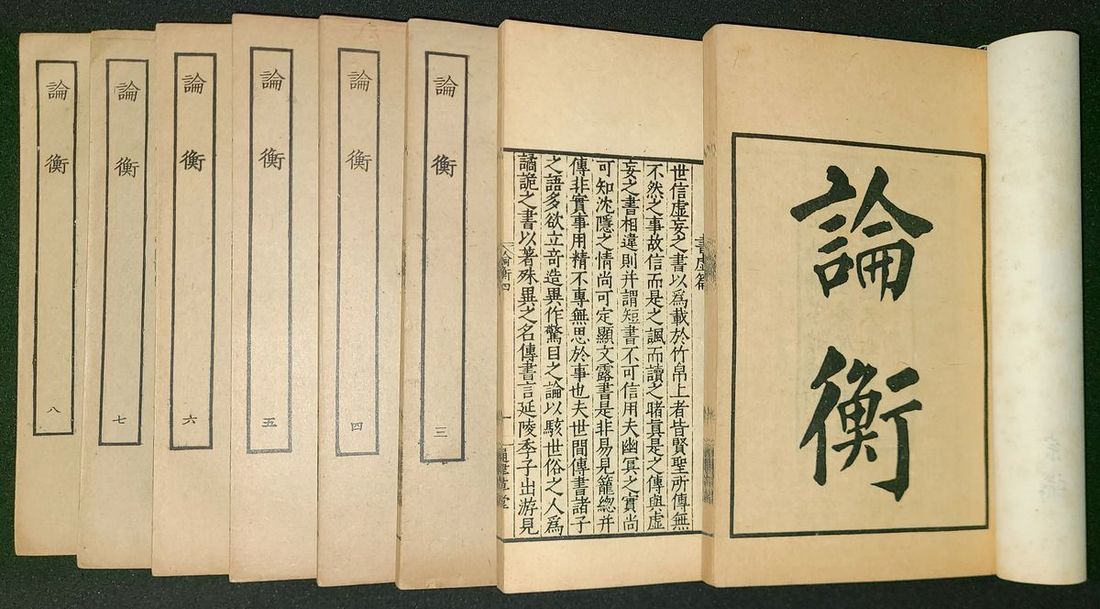 論衡
書虛篇
世信虛妄之書以爲載於竹帛上者皆賢聖所傳無
不然之事故信而是之諷而讀之睹眞是之傳與虛
妄之書相違則并謂短書不可信用夫幽冥之實尚
可知沈隱之情尚可定顯文露書是非易見籠總并
傳非實事用精不專無思於事也夫世間傳書諸子
之語多欲立竒造異作驚目之論以駭世俗之人爲
譎詭之書以著殊異之名傳書言延陵季子出游見
論衡四 一 通津草堂
論衡 三
論衡 四
論衡 五
論衡 六
論衡 七
論衡 八